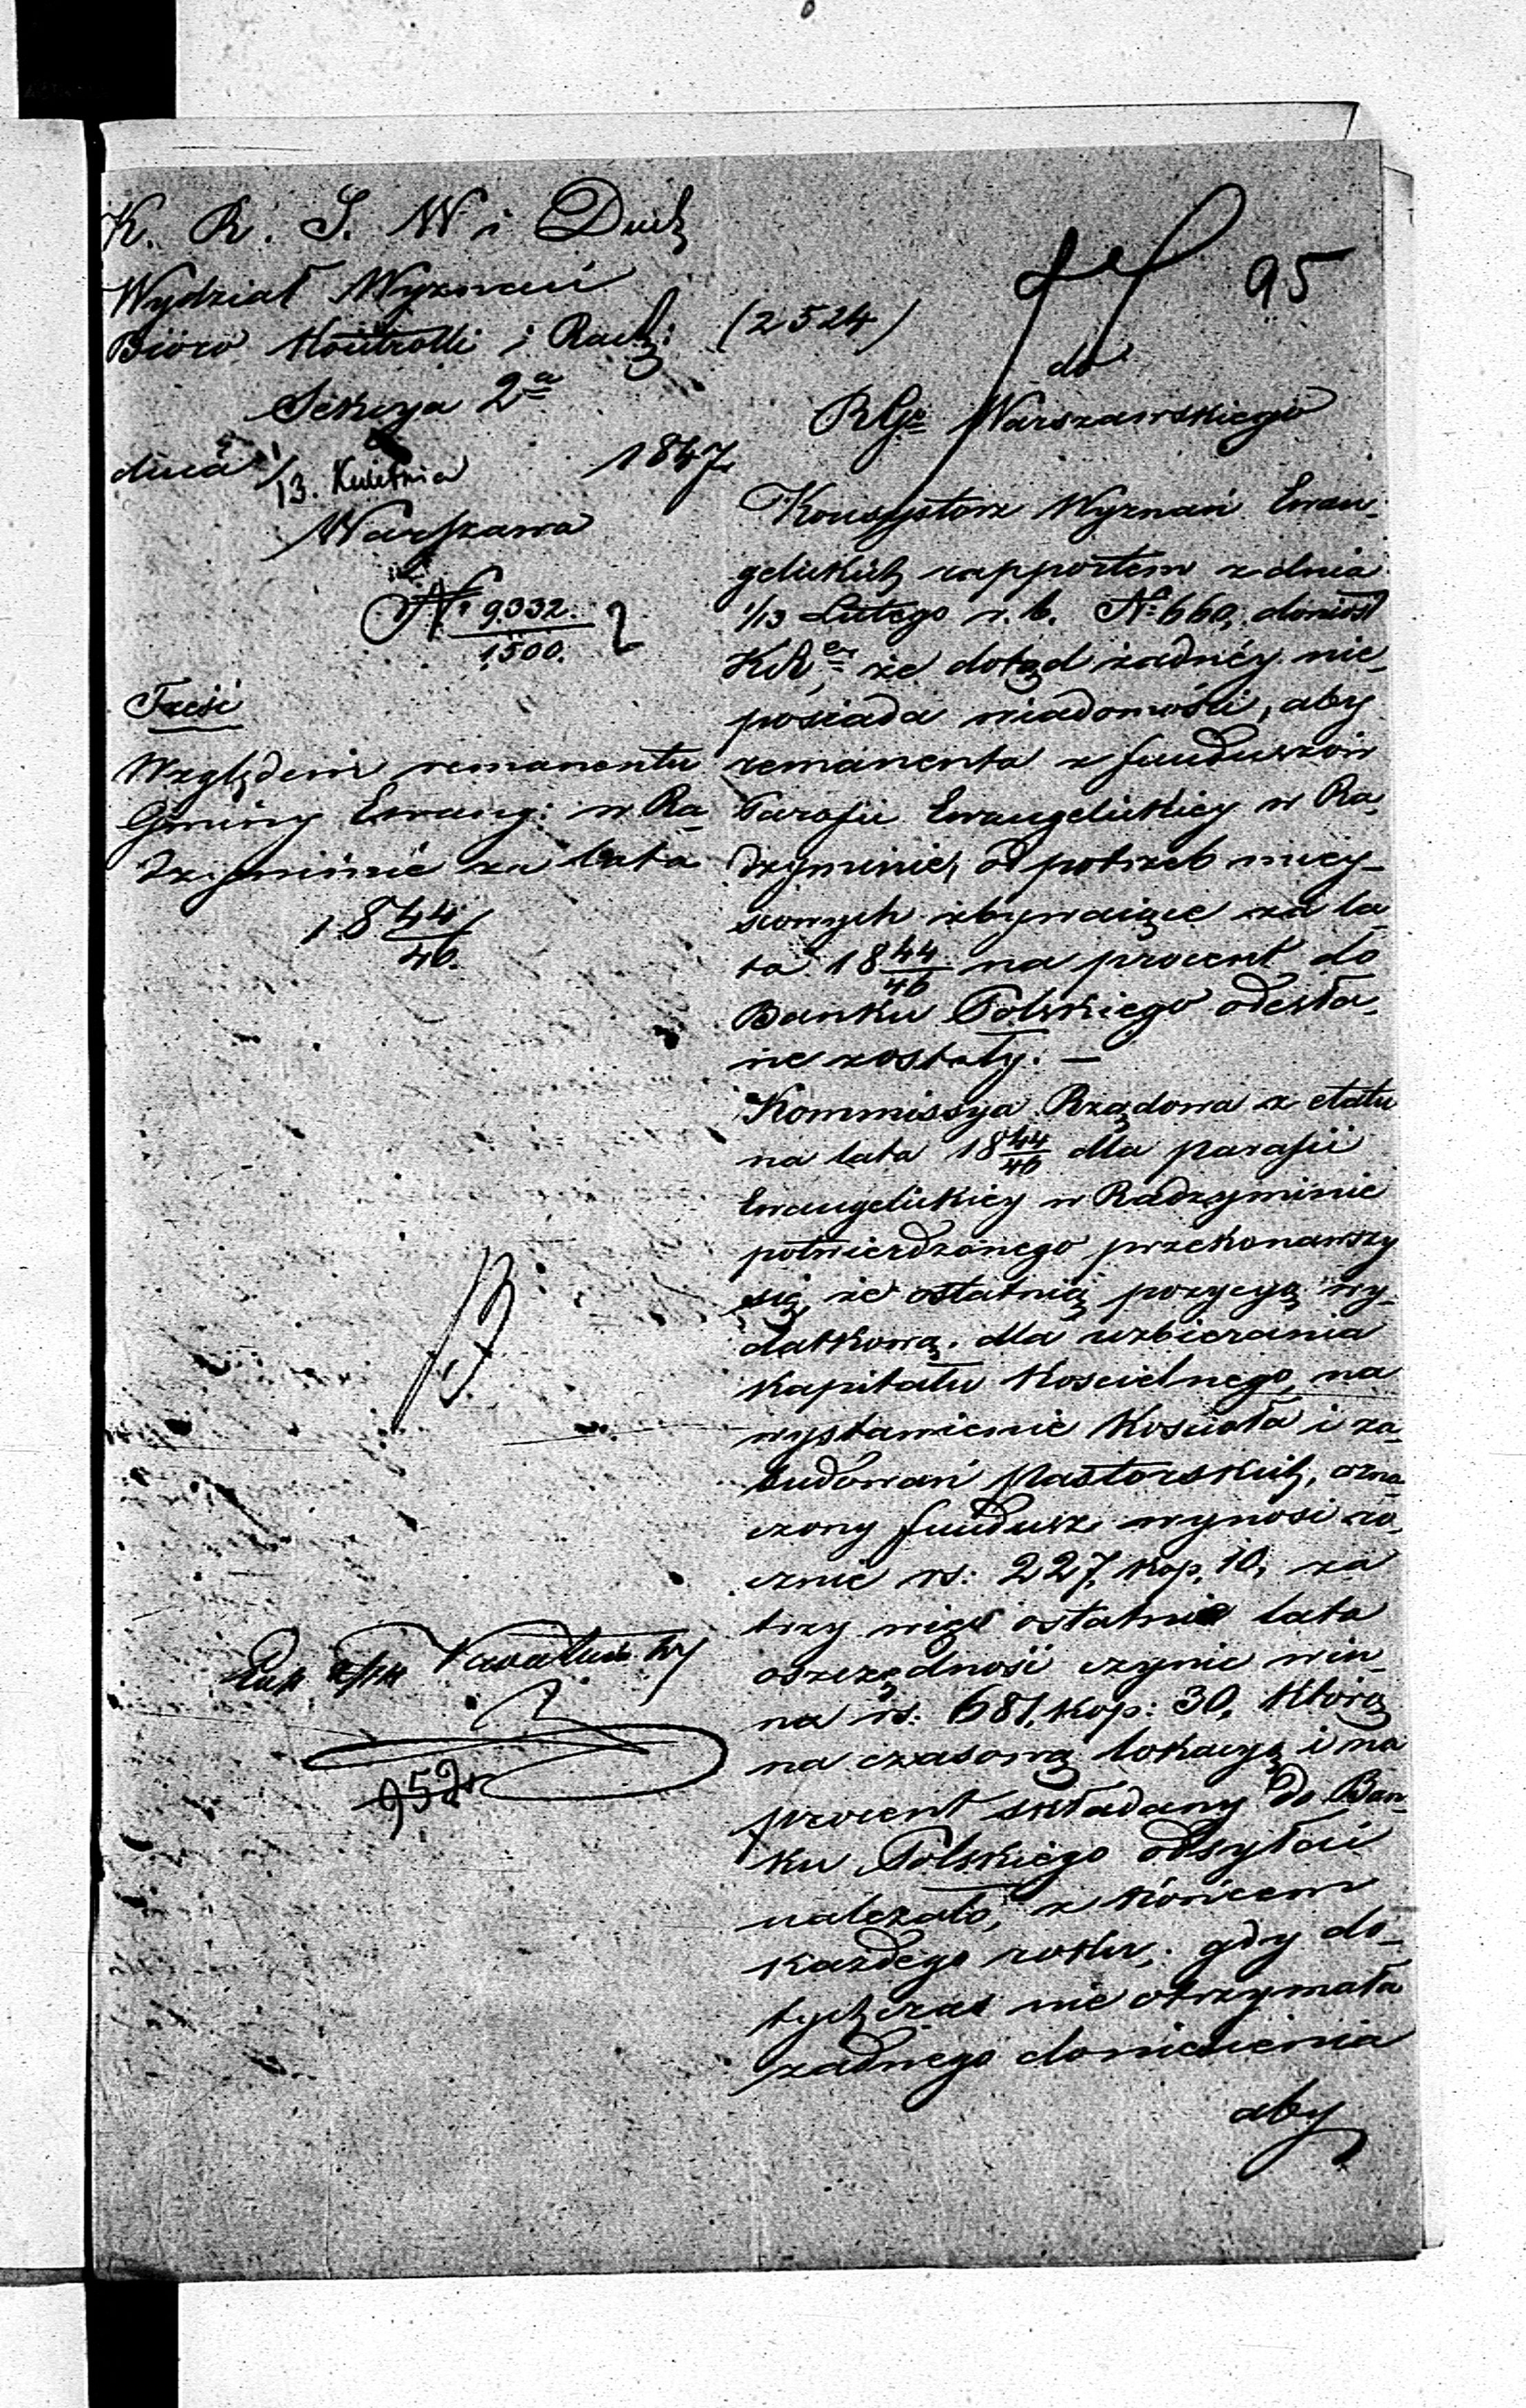 K. R. S. W i Duch
Wydział Wyznań
Bióro Kontrolli i Rach: (2524)
Sekcya 2ª
dnia 1/13. Kwietnia 1847
Warszawa
№ 9032/1500.
Treść
Względem remanentu
Gminy Ewang: w Ra-
dzyminie za lata
18 44/46.
952
95
do
RGo Warszawskiego
Konsystorz Wyznań Ewan-
gelickich rapportem z dnia
1/13 Lutego r. b. № 660, doniósł
KR, że dotąd żadnéy nie-
posiada wiadomości, aby
remanenta z funduszów
Parafii Ewangelickiey w Ra-
dzyminie, od potrzeb miey-
scowych zbywaiące za la-
ta 18 44/46 na procent do
Banku Polskiego odesła-
ne zostały. —
Kommissya Rządowa z etatu
na lata 18 44/46 dla parafii
Ewangelickiey w Radzyminie
potwierdzonego przekonawszy
się, że ostatnią pozycyą wy-
datkową, dla uzbierania
kapitału Kościelnego, na
wystawienie Kościoła i za-
budowań Pastorskich, ozna-
czony fundusz wynosi ro-
cznie rs: 227, kop. 10, za
trzy więc ostatnie lata
oszczędność czynić win-
na rs: 681, kop: 30, którą
na czasową lokacyą i na
procent składany do Ban-
ku Polskiego odsyłać
należało, z końcem
każdego roku; gdy do-
tychczas nie otrzymała
żadnego doniesienia
aby